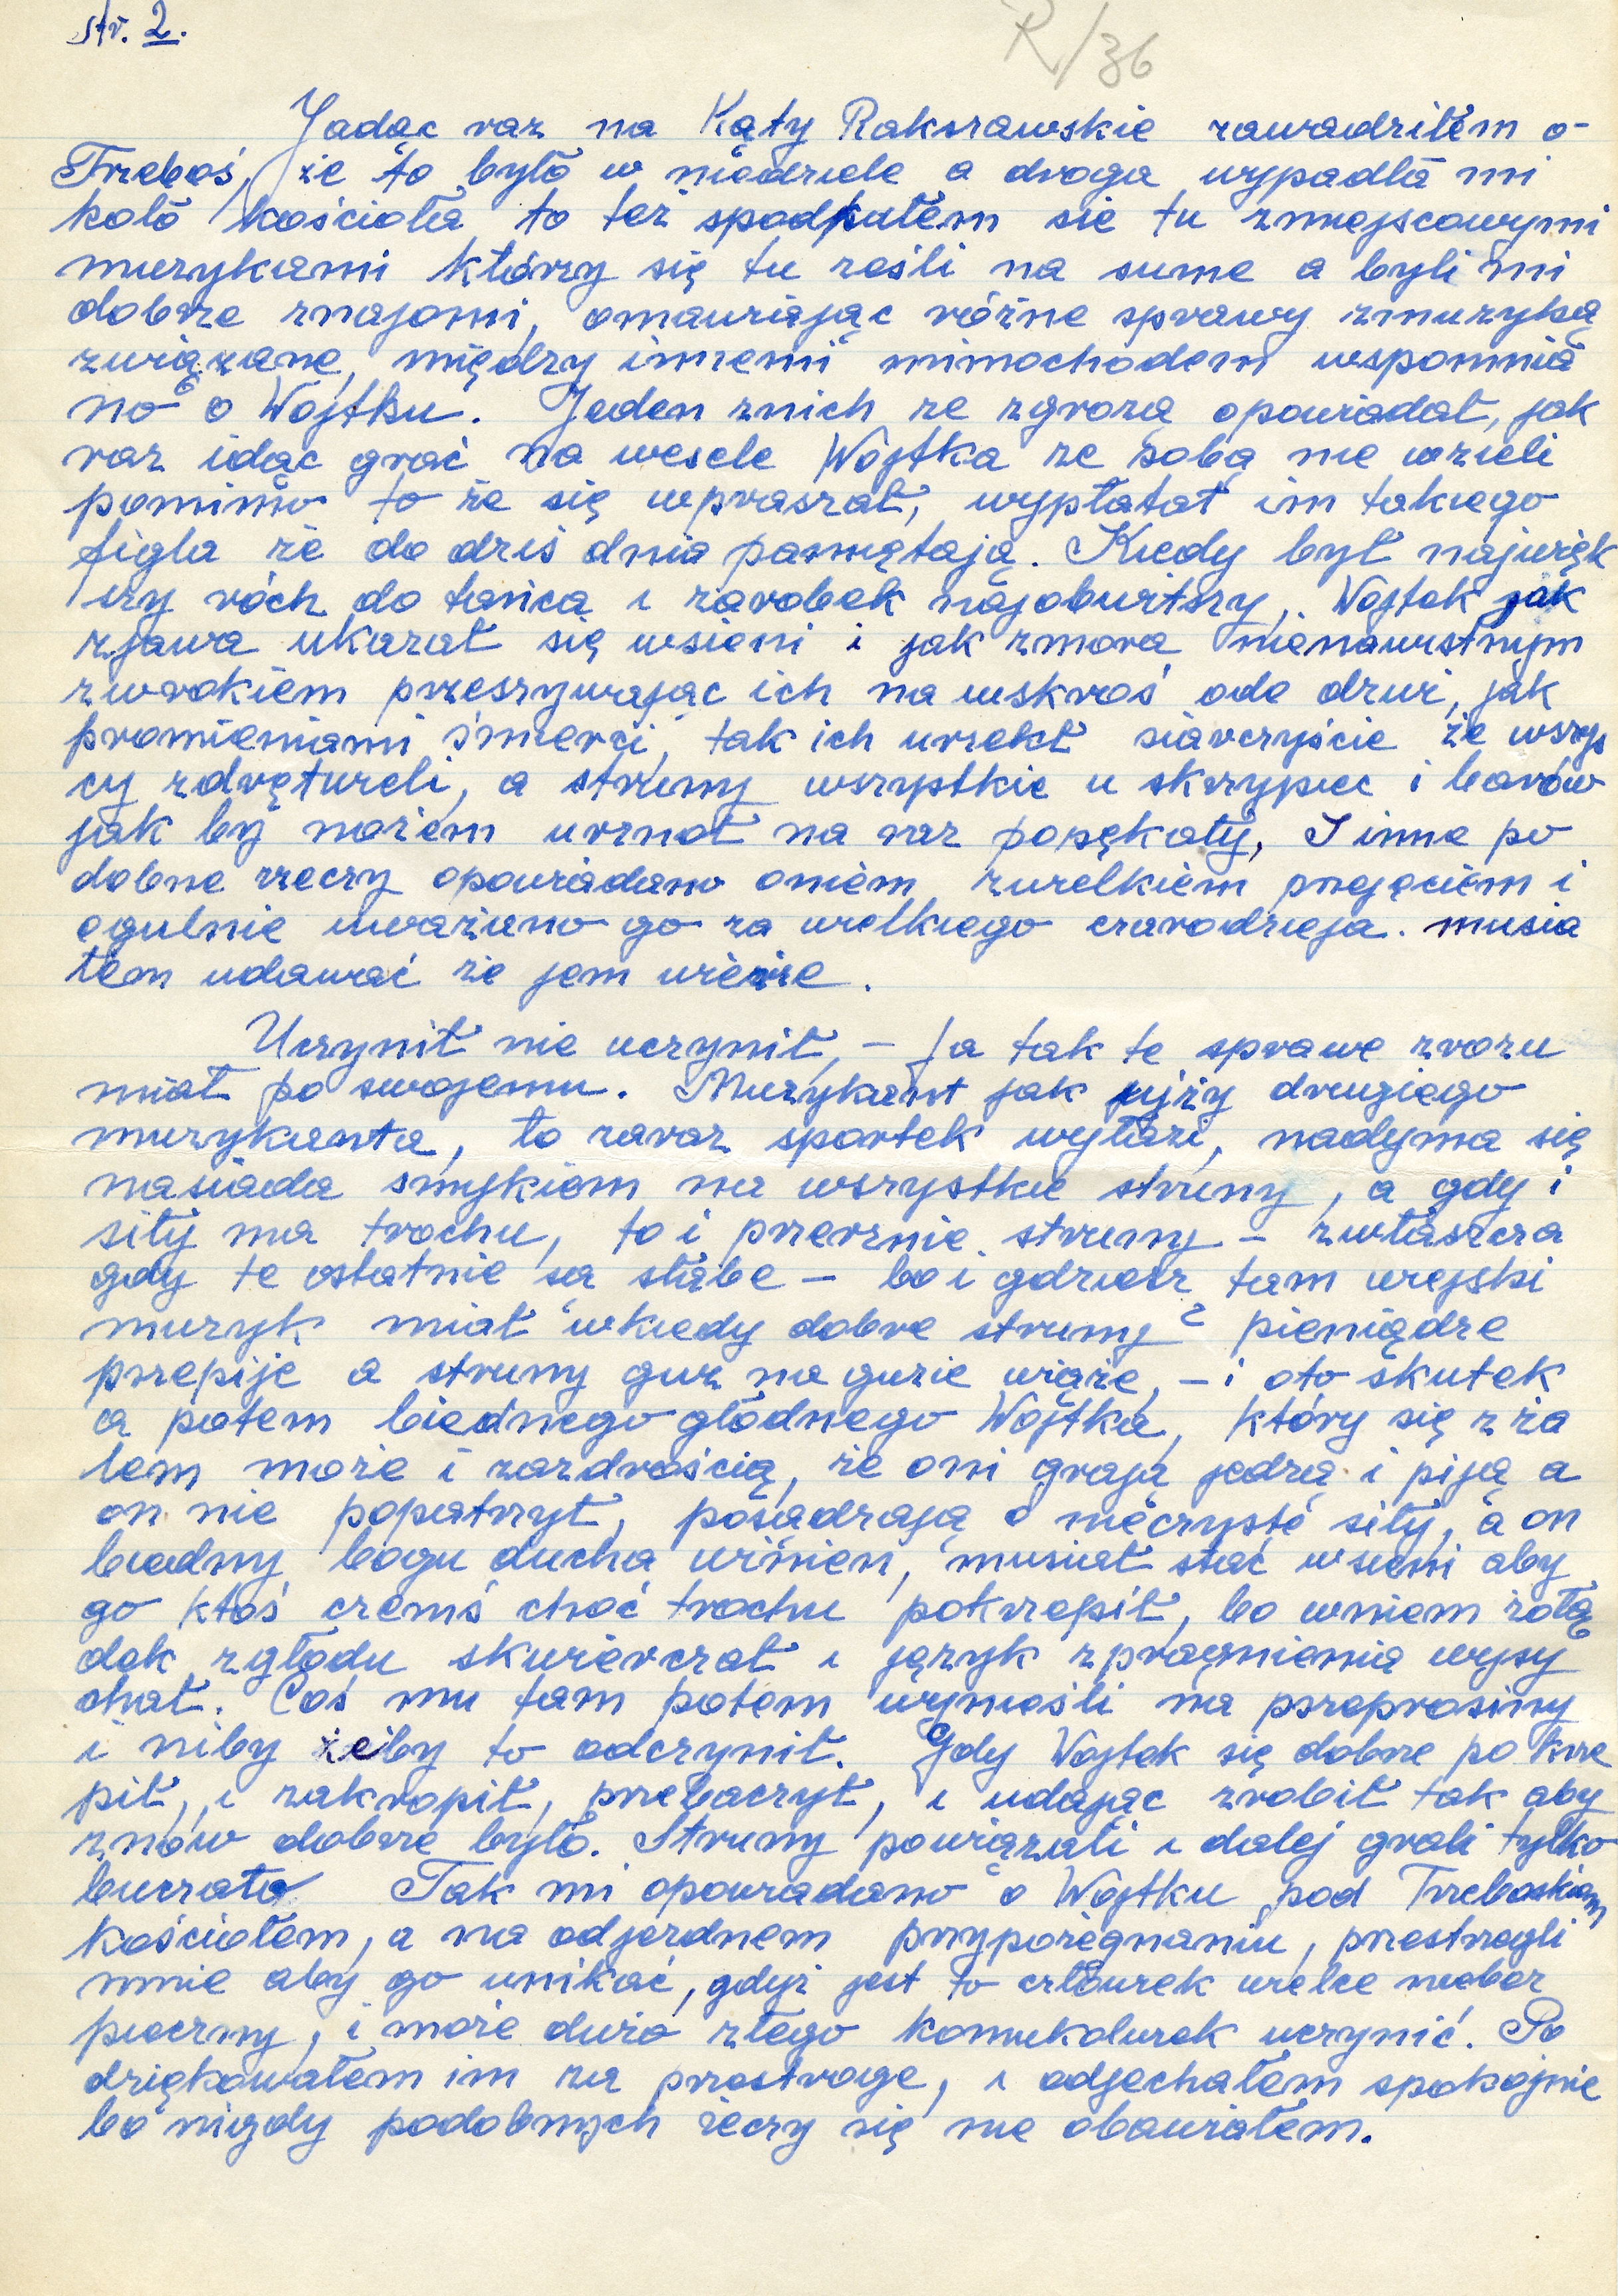 str. 2.
R/36
Jadąc raz na Kąty Rakszawskie zawadziłem o-
Trzeboś, że to było w niedziele a droga wypadła mi
koło kościoła to też spodkałem sie tu zmiejscowymi
muzykami którzy się tu ześli na sume a byli mi
dobrze znajomi, omawiając różne sprawy zmuzyką
związane, między innemi mimochodem wspomnia
no o Wojtku. Jeden znich ze zgrozą opowiadał, jak
raz idąc grać na wesele Wojtka ze sobą nie wzieli
pomimo to że się wpraszał, wypłatał im takiego
figla że do dziś dnia pamiętają. Kiedy był najwięk
szy róch do tańca i zarobek najobwitszy, Wojtek jak
zjawa ukazał się wsieni i jak zmora nienawistnym
zwrokiem przeszywając ich na wskroś ode drzwi, jak
promieniami śmierci, tak ich urzekł siarczyście że wszys
cy zdrętwieli, a struny wszystkie u skrzypiec i basów
jak by nożem urznoł na raz popękały, I inne po
dobne rzeczy opowiadano oniem zwielkiem przejęciem i
ogulnie uważano go za wielkiego czarodzieja. musia
łem udawać że jem wieże.
Uczynił nie uczynił, – Ja tak te sprawe zrozu
miał po swojemu. Muzykant jak ujży drugiego
muzykanta, to zaraz sportek wyłazi, nadyma się
nasiada smykiem na wszystkie struny, a gdy i
siły ma trochu, to i przerznie struny – zwłaszcza
gdy te ostatnie są słabe – bo i gdzież tam wiejski
muzyk miał wkiedy dobre struny? pieniądze
przepije a struny guz na guzie wiąże, – i oto skutek
a potem biednego głodnego Wojtka, który się z ża
lem może i zazdrością, że oni grają jedzą i piją a
on nie popatrzył, posiadzają o nieczyste siły, a on
biedny bogu ducha winien, musiał stać wsieni aby
go ktoś czemś choć trochu pokrzepił, bo wniem żołą
dek zgłodu skwierczał i język zpragnienia wysy
chał. Coś mu tam potem wynieśli na przeprosiny
i niby żeby to odczynił. Gdy Wojtek się dobrze pokrze
pił, i zakropił, przebaczył, i udając zrobił tak aby
znów dobrze było. Struny powiązali i dalej grali tylko
buczało Tak mi opowiadano o Wojtku pod Trzeboskiem
kościołem, a na odjezdnem przypożegnaniu, przestrzegli
mnie aby go unikać, gdyż jest to człowiek wielce niebez
pieczny, i może dużo złego komukolwiek uczynić. Po
dziękowałem im za przestroge, i odjechałem spokojnie
bo nigdy podobnych żeczy się nie obawiałem.